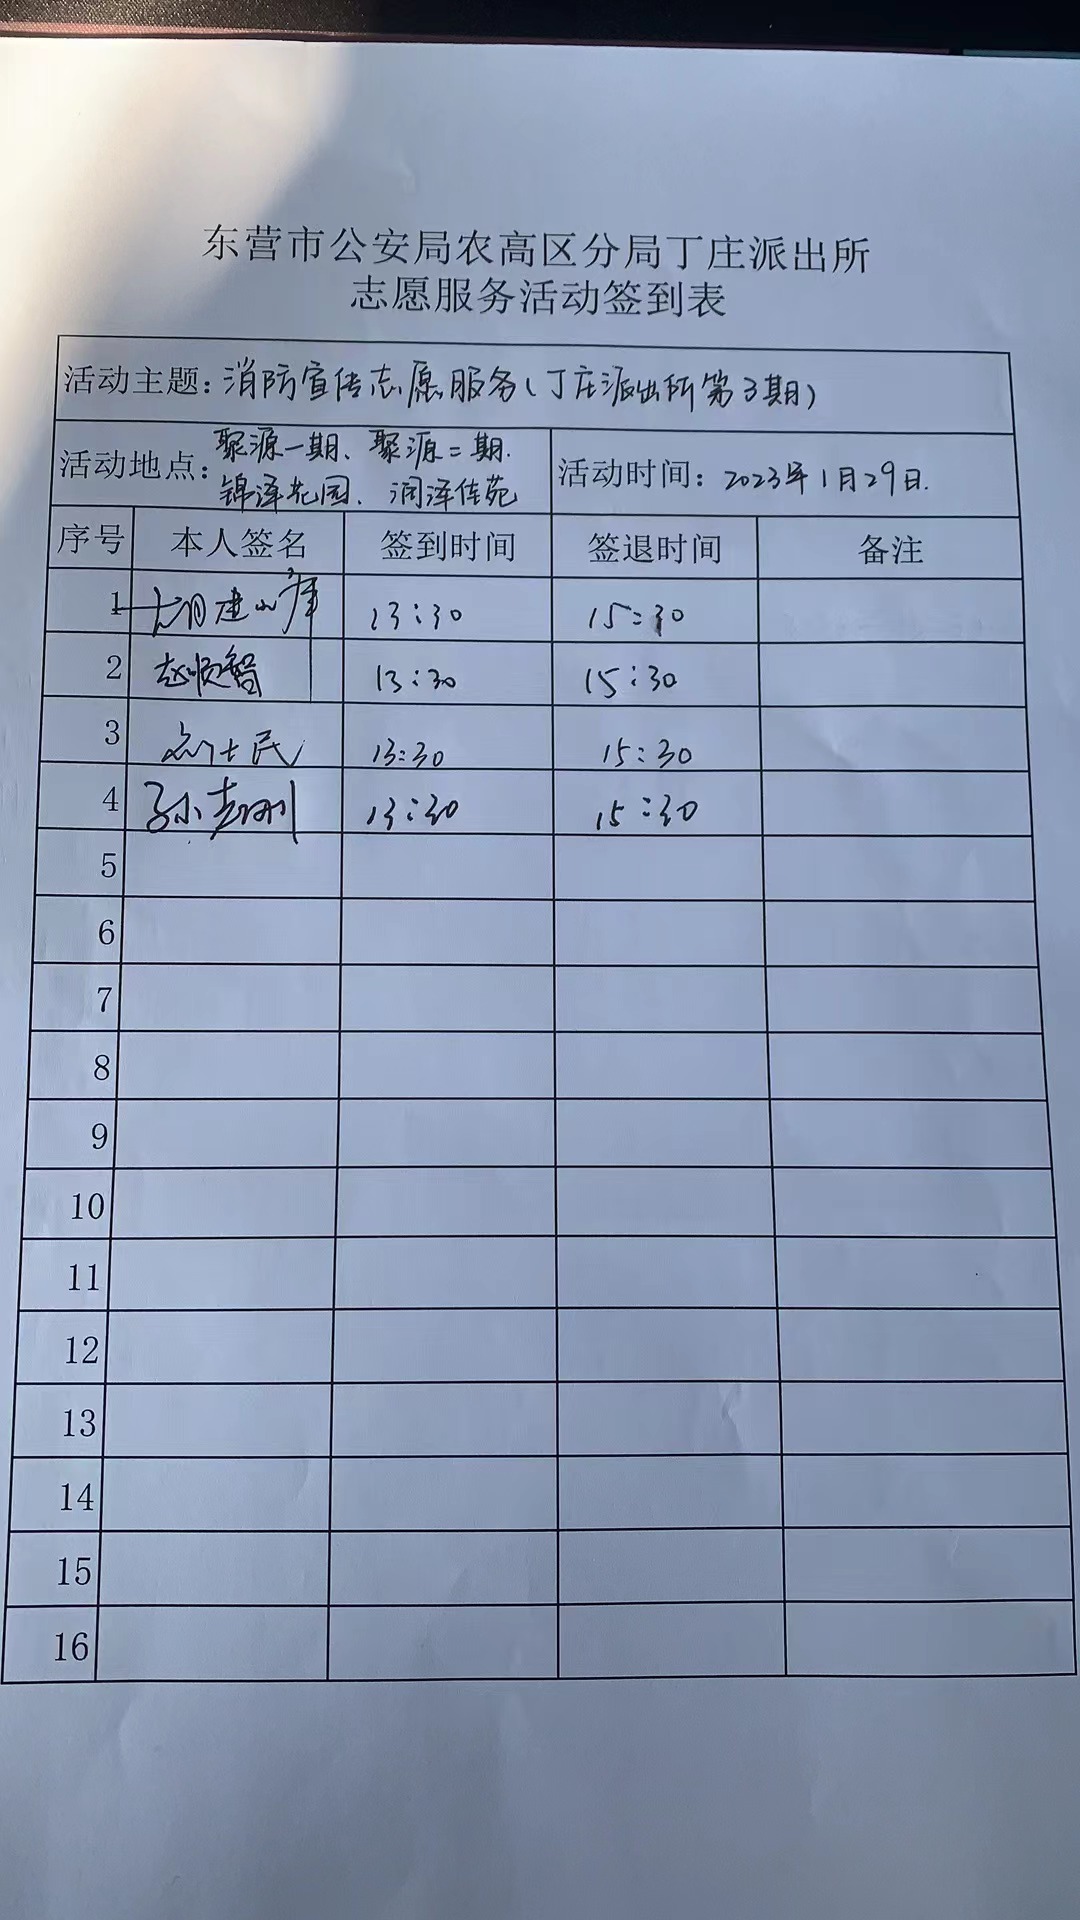 东营市公安局农高区分局丁庄派出所
志愿服务活动签到表
活动主题：消防宣传志愿服务（丁庄派出所第3期）
活动地点：聚源一期、聚源二期.
锦泽花园、润泽佳苑
活动时间：2023年1月29日.
序号 本人签名 签到时间 签退时间 备注
1 13:30 15:30
2 赵顺智 13:30 15:30
3 13:30 15:30
4 孙 13:30 15:30
5
6
7
8
9
10
11
12
13
14
15
16